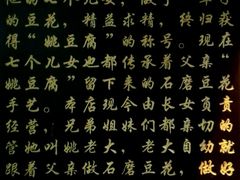 的豆花，精益求精，终归获
得“姚豆腐”的称号。现在
七个儿女也都传承着父亲“
姚豆腐”留下来的石磨豆花的
手艺。本店现今由长女负责
经营，兄弟姐妹们都亲切的
管她叫姚老大，老大自幼就
跟着父亲做石磨豆花，做好